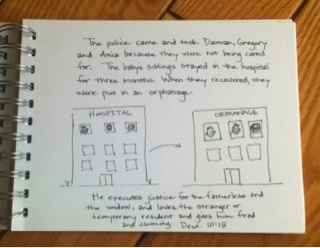 The police came and took Damian, Gregory
and Ania because they were not being cared
for. The boys siblings stayed in the hospital
for three months. When they recovered, they
were put in an orphanage.
HOSPITAL
ORPHANAGE
He executes justice for the fatherless and
the widow, and loves the stranger or
temporary resident and gives him food
and clothing. Deut. 10:18